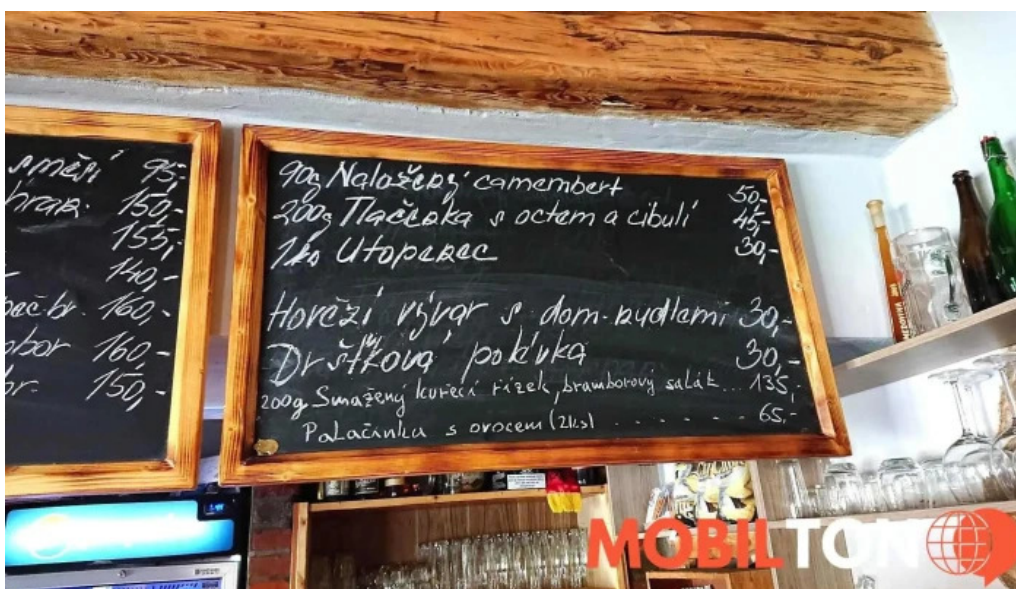 směsí 95,-
hran. 150,-
155,-
140,-
br. 160,-
160,-
br. 150,-
90g Naložený camembert 50,-
200g Tlačenka s octem a cibulí 45,-
1ks Utopenec 30,-
Hovězí vývar s dom. nudlemi 30,-
Drštková polévka 30,-
200g Smažený kuřecí řízek, bramborový salát... 135,-
Palačinka s ovocem (2ks) . . . . . . 65,-
MOBIL